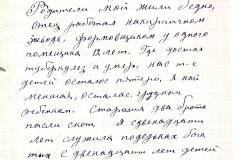 Родители мои жили бедно,
отец работал на кирпичном
заводе, формовщиком у одного
помещика 12 лет. Где достал
туберкулез и умер. нас т-е
детей осталось пятеро, я най
меньшая, осталась грудным
ребенком. Старшия два брата
пасли скот. Я с двенадцати
лет служила подёньках бога
тых с двенадцати лет детей